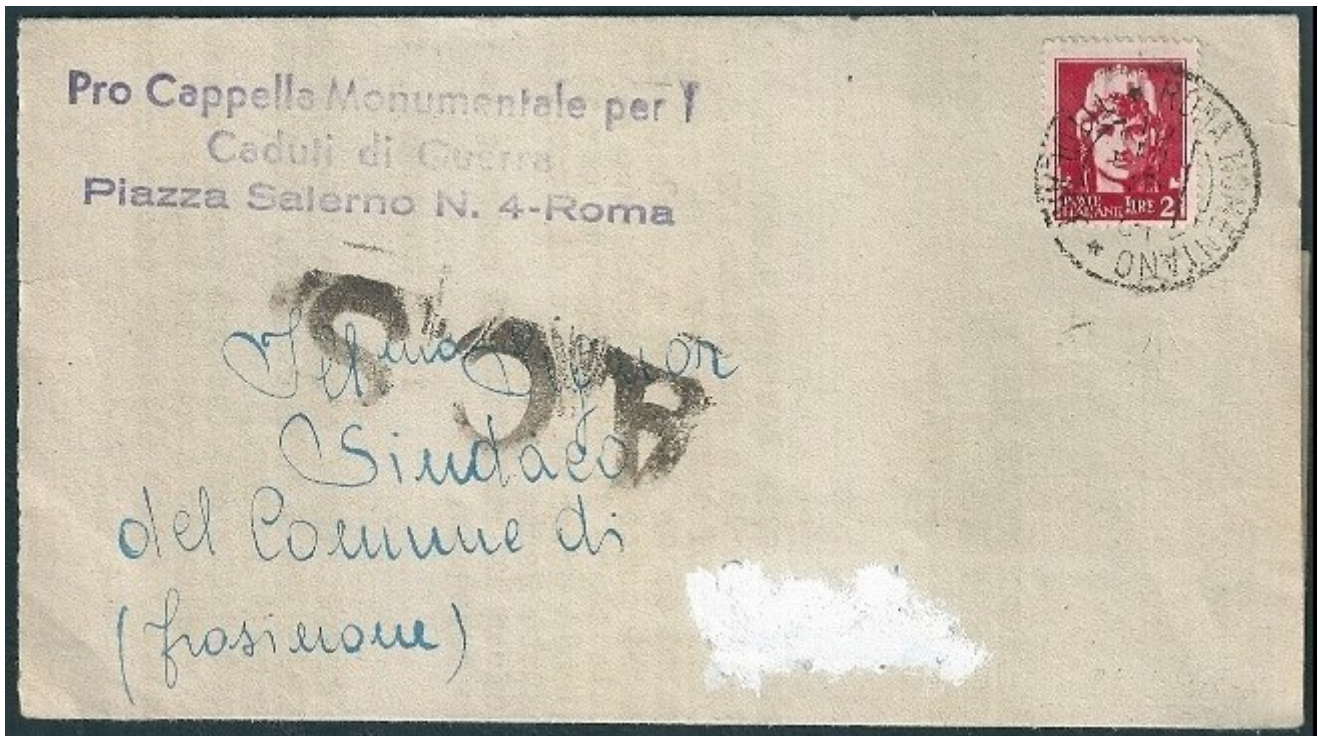 Pro Cappella Monumentale per i
Caduti di Guerra
Piazza Salerno N. 4-Roma
POSTE
ITALIANE LIRE 2
ROMA NOMENTANO
Signor
Sindaco
del Comune di
(Frosinone)